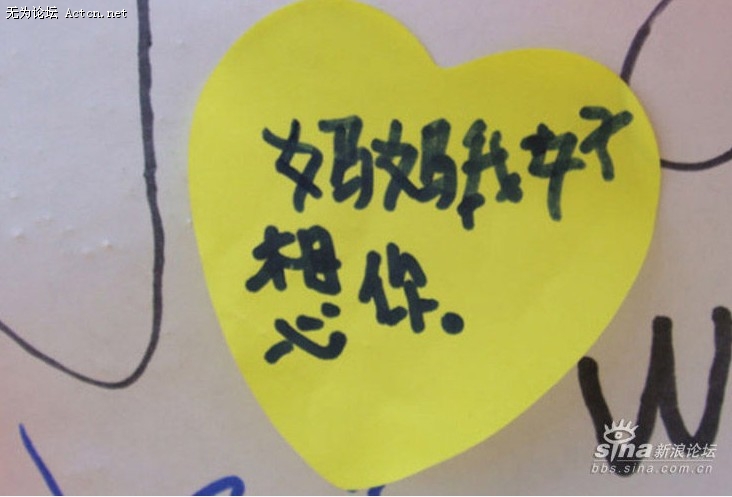 无为论坛 Actcn.net
妈妈我好
想你.
W
sina新浪论坛
bbs.sina.com.cn